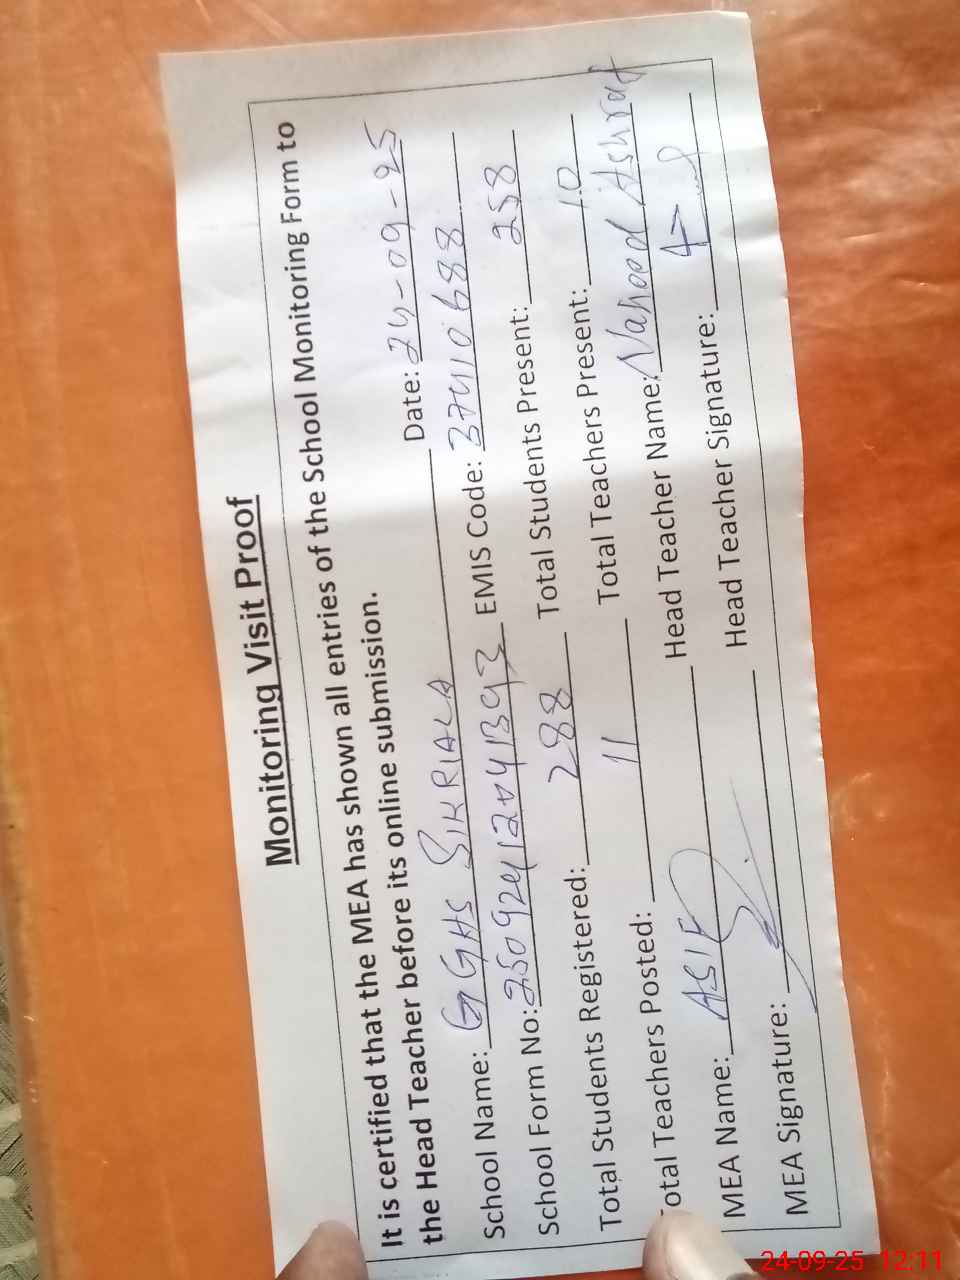 Monitoring Visit Proof
It is certified that the MEA has shown all entries of the School Monitoring Form to
the Head Teacher before its online submission.
School Name: GGHS SIKRIALA Date: 24-09-25
School Form No: EMIS Code: 37410688
Total Students Registered: 288 Total Students Present: 258
Total Teachers Posted: 11 Total Teachers Present: 10
MEA Name: ASIF Head Teacher Name: Naheed Ashraf
MEA Signature: Head Teacher Signature:
24-09-25 12:11